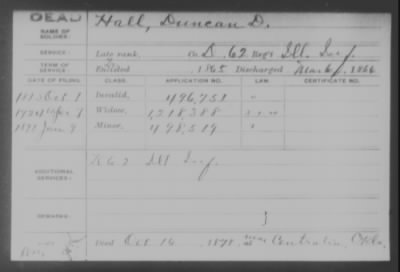 DEAD
Hall, Duncan D.
NAME OF SOLDIER:
SERVICE:
Late rank, Co. D. 62 Reg't Ill. Inf.
TERM OF SERVICE:
Enlisted 1865 Discharged Mar 6, 1866
DATE OF FILING. CLASS. APPLICATION NO. LAW. CERTIFICATE NO.
Oct 7 Invalid, 496,751 "
Widow, 1,218,388
Jan 9 Minor, 498,519
ADDITIONAL SERVICES:
D 62 Ill Inf.
REMARKS:
Died Oct 16 1898, near Centralia, Okla.